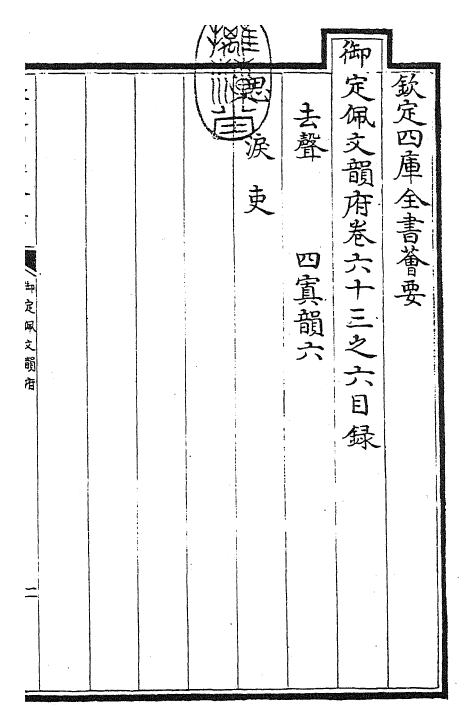 欽定四庫全書薈要
御定佩文韻府卷六十三之六目録
去聲 四寘韻六
思 淚 吏
御定佩文韻府 二